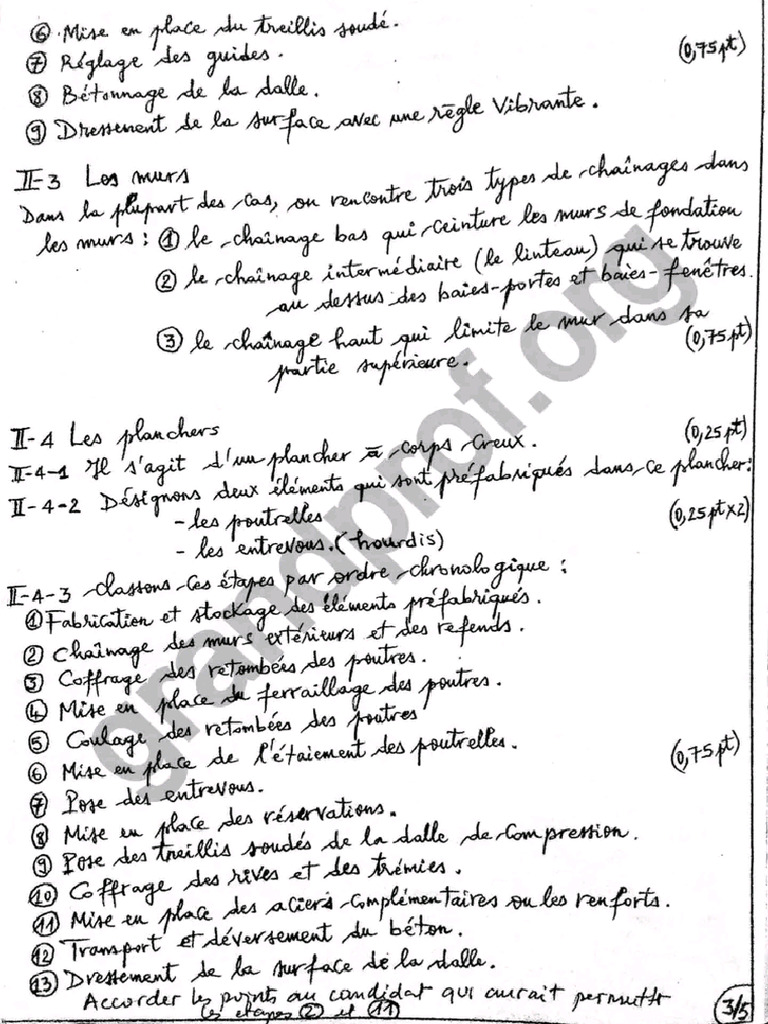 ⑥ Mise en place du treillis soudé.
⑦ Réglage des guides. (0,75pt)
⑧ Bétonnage de la dalle.
⑨ Dressement de la surface avec une règle vibrante.
II-3 Les murs
Dans la plupart des cas, on rencontre trois types de chaînages dans
les murs : ① le chaînage bas qui ceinture les murs de fondation
② le chaînage intermédiaire (le linteau) qui se trouve
au dessus des baies-portes et baies-fenêtres.
③ le chaînage haut qui limite le mur dans sa
partie supérieure. (0,75pt)
II-4 Les planchers (0,25pt)
II-4-1 Il s'agit d'un plancher à corps creux.
II-4-2 Désignons deux éléments qui sont préfabriqués dans ce plancher:
- les poutrelles (0,25pt x2)
- les entrevous. (hourdis)
II-4-3 classons ces étapes par ordre chronologique :
① Fabrication et stockage des éléments préfabriqués.
② Chaînage des murs extérieurs et des refends.
③ Coffrage des retombées des poutres.
④ Mise en place du ferraillage des poutres.
⑤ Coulage des retombées des poutres
⑥ Mise en place de l'étaiement des poutrelles. (0,75pt)
⑦ Pose des entrevous.
⑧ Mise en place des réservations.
⑨ Pose des treillis soudés de la dalle de compression.
⑩ Coffrage des rives et des trémies.
⑪ Mise en place des aciers complémentaires ou les renforts.
⑫ Transport et déversement du béton.
⑬ Dressement de la surface de la dalle.
Accorder les points au candidat qui aurait permuté
les étapes ② et ⑪
3/5
grandprof.org